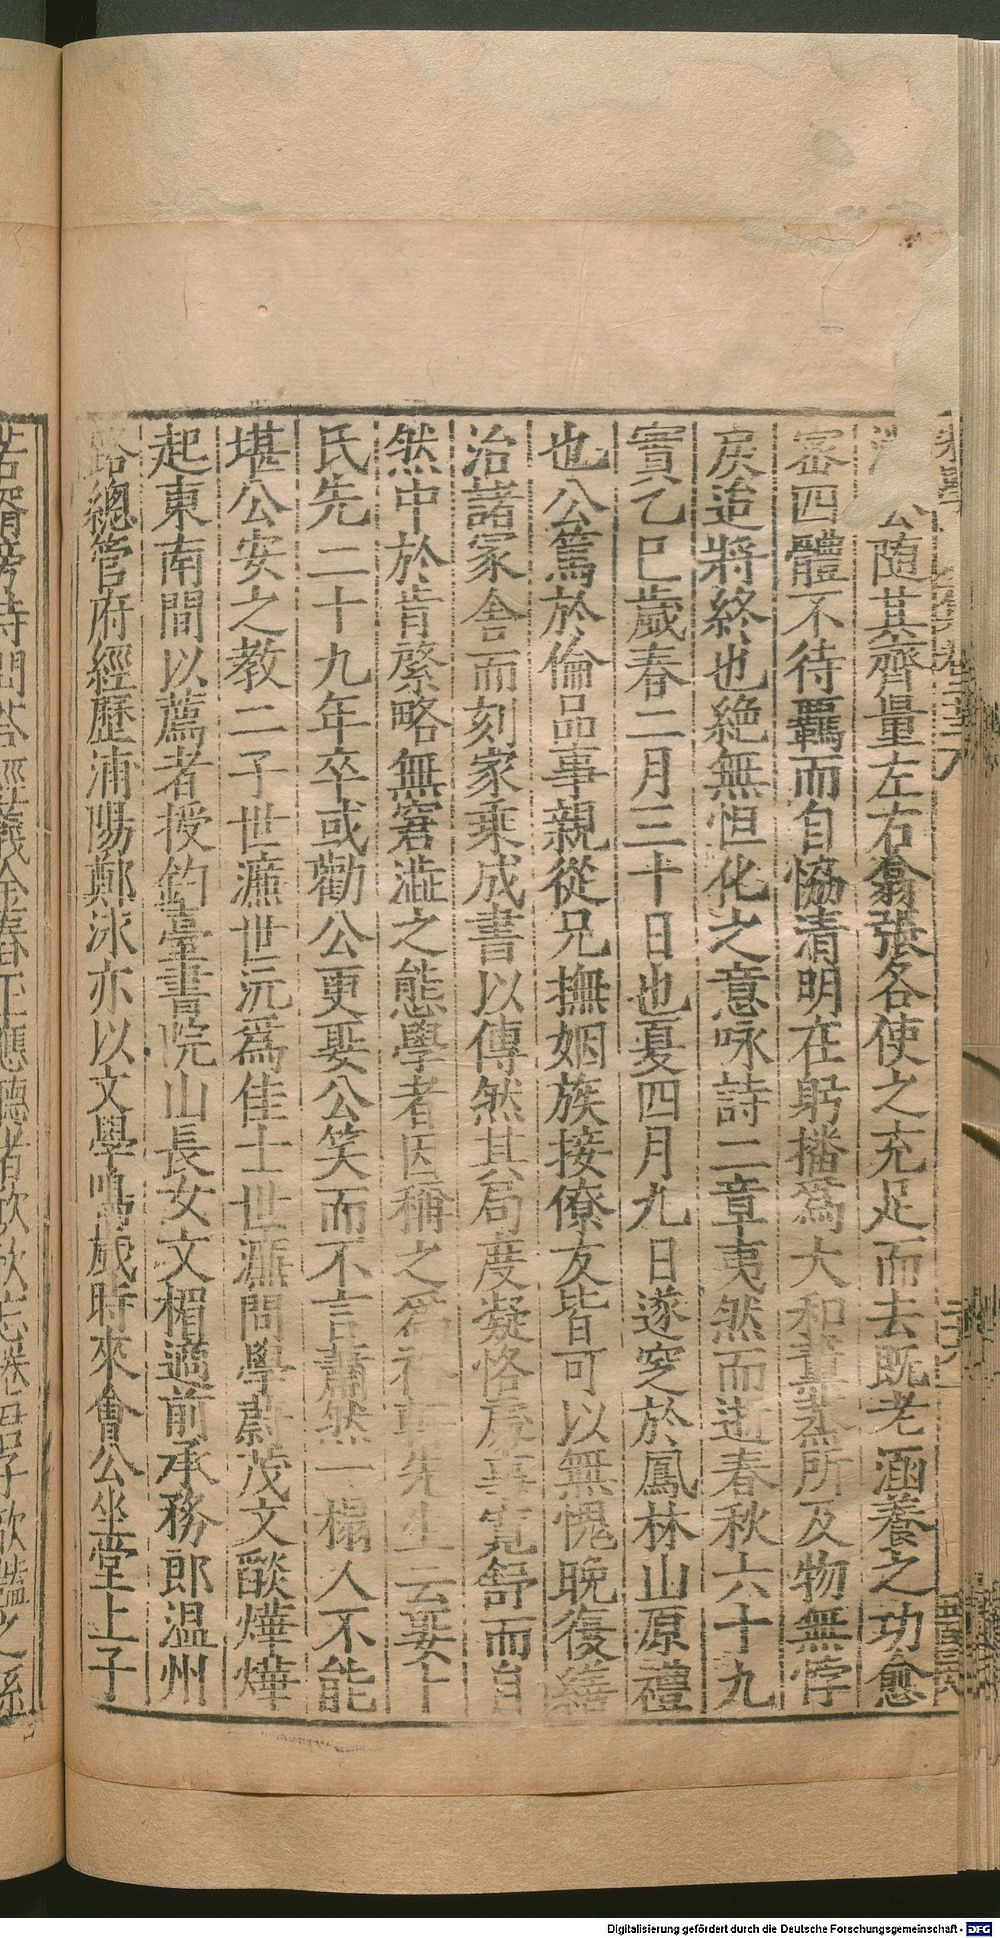 公隨其齊量左右翕張各使之充足而去既老涵養之功愈
密四體不待羈而自恊清明在躬播為大和薰蒸所及物無悖
戾迨將終也絶無怛化之意咏詩二章夷然而逝春秋六十九
實乙巳歲春二月三十日也夏四月九日遂窆於鳳林山原禮
也公篤於倫品事親從兄撫姻族接僚友皆可以無愧晚復繕
治諸冡舍而刻家乘成書以傳然其局度凝恪處事寛舒而自
然中於肯綮略無窘澁之態學者因稱之為先生云娶
氏先二十九年卒或勸公更娶公笑而不言蕭然一榻人不能
堪公安之教二子世㢘世沅為佳士世濂問學蔚茂文燄燁燁
起東南間以薦者授釣臺書院山長女文楣適前承務郎温州
路總管府經歷浦陽鄭泳亦以文學鳴歲時來會公坐堂上子
Digitalisierung gefördert durch die Deutsche Forschungsgemeinschaft - DFG